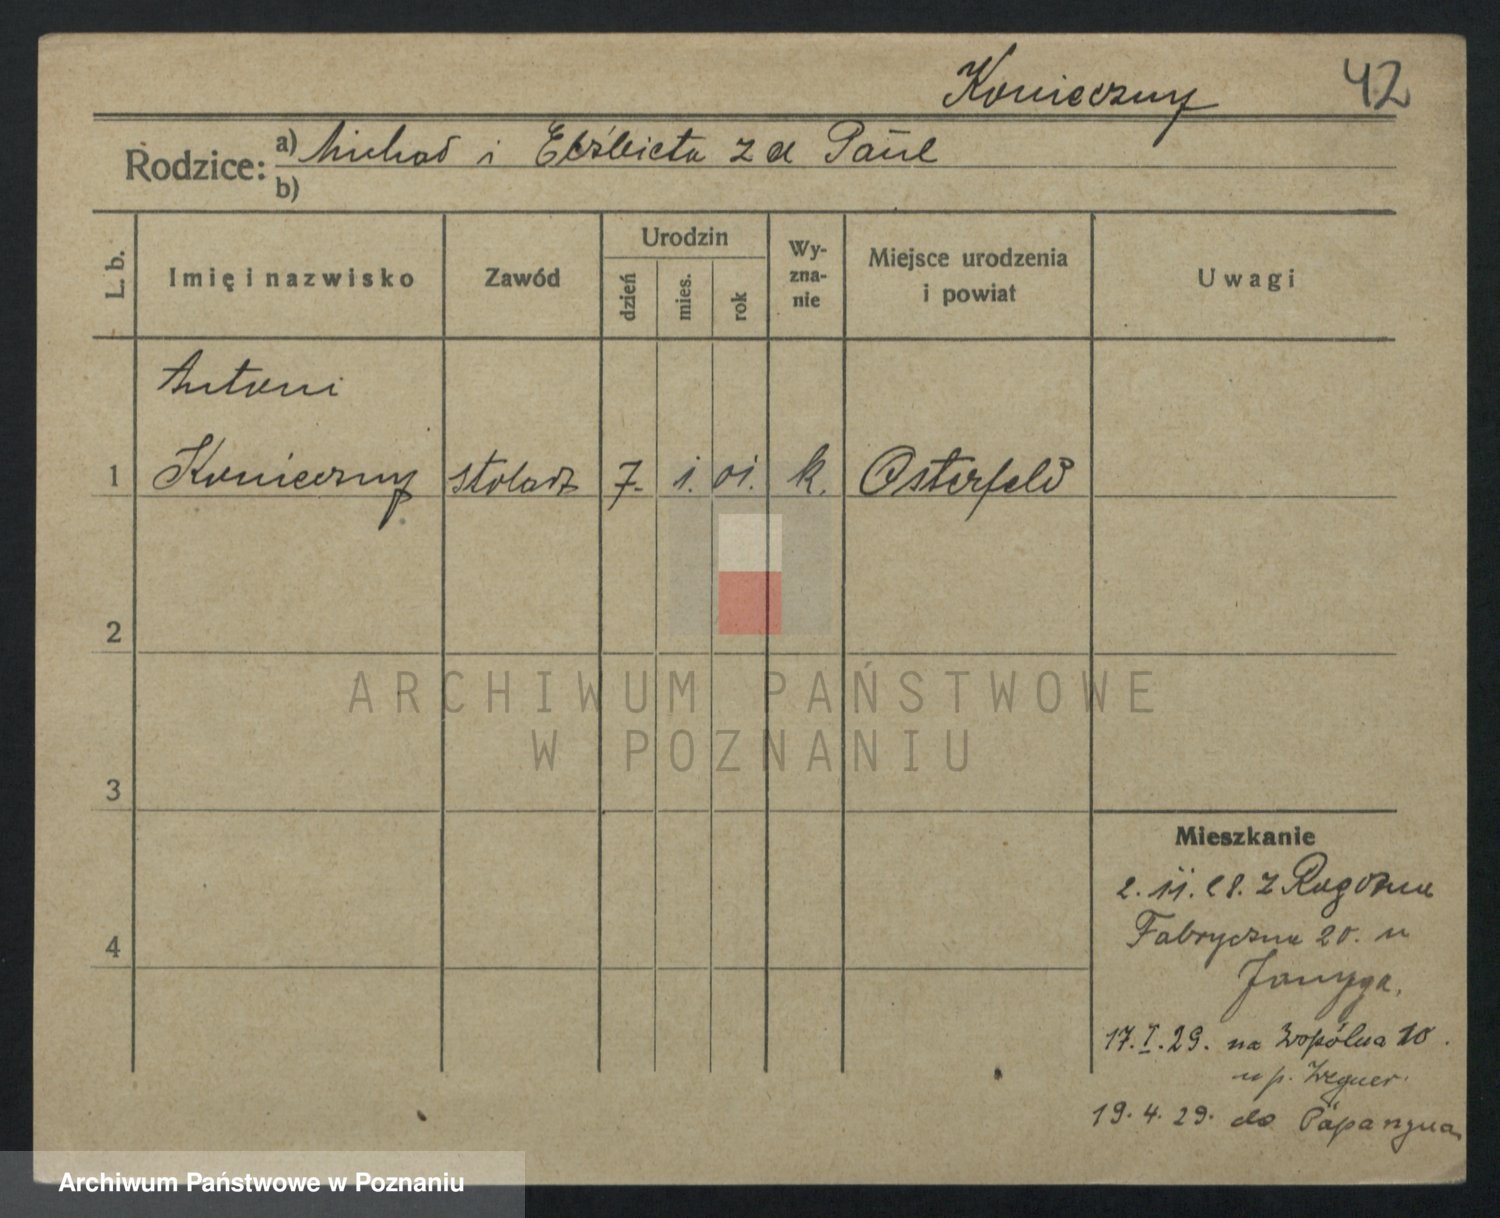 Konieczny 42
Rodzice: a) Michał i Elżbieta z d Paul
b)
L. b. Imię i nazwisko Zawód Urodzin dzień mies. rok Wy-zna-nie Miejsce urodzenia i powiat Uwagi
Antoni
1 Konieczny stolarz 7. i. oi. k. Osterfeld
2
ARCHIWUM PAŃSTWOWE
W POZNANIU
3
Mieszkanie
2. ii. 28. z Rogoźna
Fabryczna 20. u
4
17.I.29. na Wspólna 10.
u p. Wegner.
19.4.29. do
Archiwum Państwowe w Poznaniu